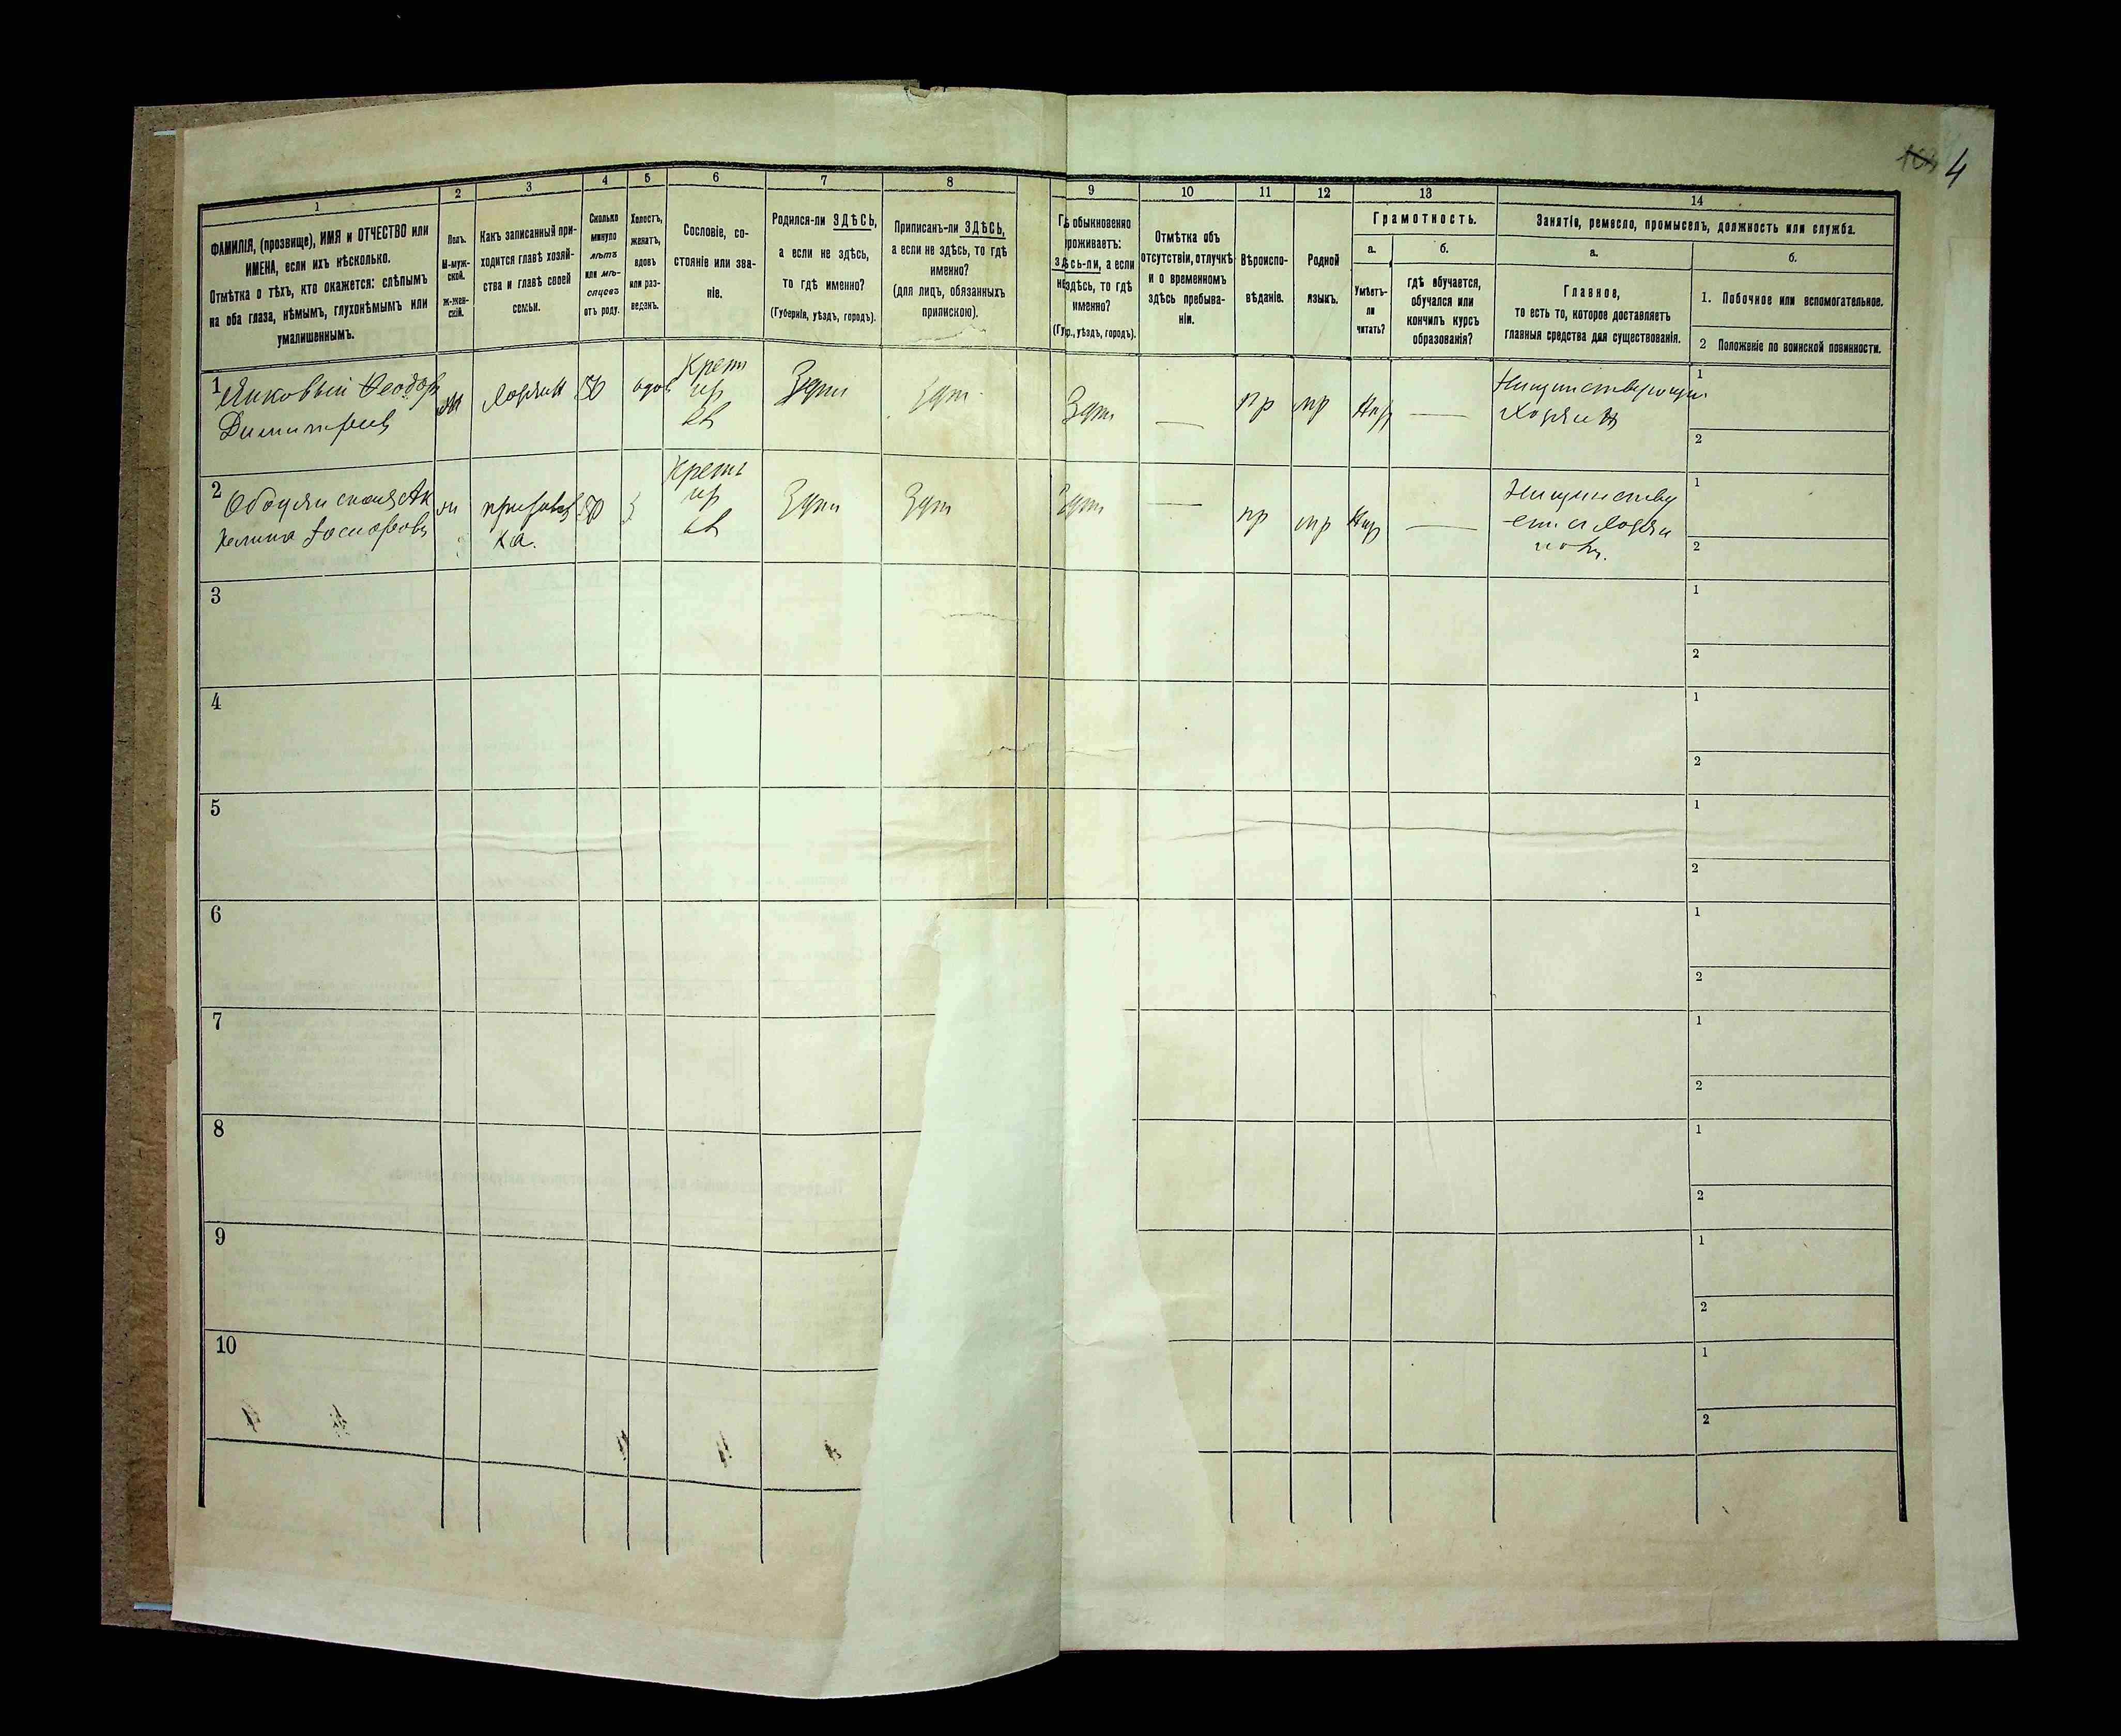 104 4
1 2 3 4 5 6 7 8 9 10 11 12 13 14
ФАМИЛІЯ, (прозвище), ИМЯ и ОТЧЕСТВО или
ИМЕНА, если ихъ нѣсколько.
Отмѣтка о тѣхъ, кто окажется: слѣпымъ
на оба глаза, нѣмымъ, глухонѣмымъ или
умалишеннымъ.
Полъ.
М-муж-
ской.
Ж-жен-
скій.
Какъ записанный при-
ходится главѣ хозяй-
ства и главѣ своей
семьи.
Сколько
минуло
лѣтъ
или мѣ-
сяцевъ
отъ роду.
Холостъ,
женатъ,
вдовъ
или раз-
веденъ.
Сословіе, со-
стояніе или зва-
ніе.
Родился-ли ЗДѢСЬ,
а если не здѣсь,
то гдѣ именно?
(Губернія, уѣздъ, городъ).
Приписанъ-ли ЗДѢСЬ,
а если не здѣсь, то гдѣ
именно?
(для лицъ, обязанныхъ
припискою).
Гдѣ обыкновенно
проживаетъ:
здѣсь-ли, а если
не здѣсь, то гдѣ
именно?
(Губ., уѣздъ, городъ).
Отмѣтка объ
отсутствіи, отлучкѣ
и о временномъ
здѣсь пребыва-
ніи.
Вѣроиспо-
вѣданіе.
Родной
языкъ.
Грамотность.
а.
Умѣетъ-
ли
читать?
б.
гдѣ обучается,
обучался или
кончилъ курсъ
образованія?
Занятія, ремесло, промыселъ, должность или служба.
а.
Главное,
то есть то, которое доставляетъ
главныя средства для существованія.
б.
1. Побочное или вспомогательное.
2 Положеніе по воинской повинности.
1
Димитріев
м
Хозяин
50
вдов
Крест
Здѣт
Здѣт
Здѣт
—
пр
мр
—
Хозяин
1
2
2
50
Крест
Здѣт
Здѣт
Здѣт
—
пр
мр
—
1
2
3
1
2
4
1
2
5
1
2
6
1
2
7
1
2
8
1
2
9
1
2
10
1
2